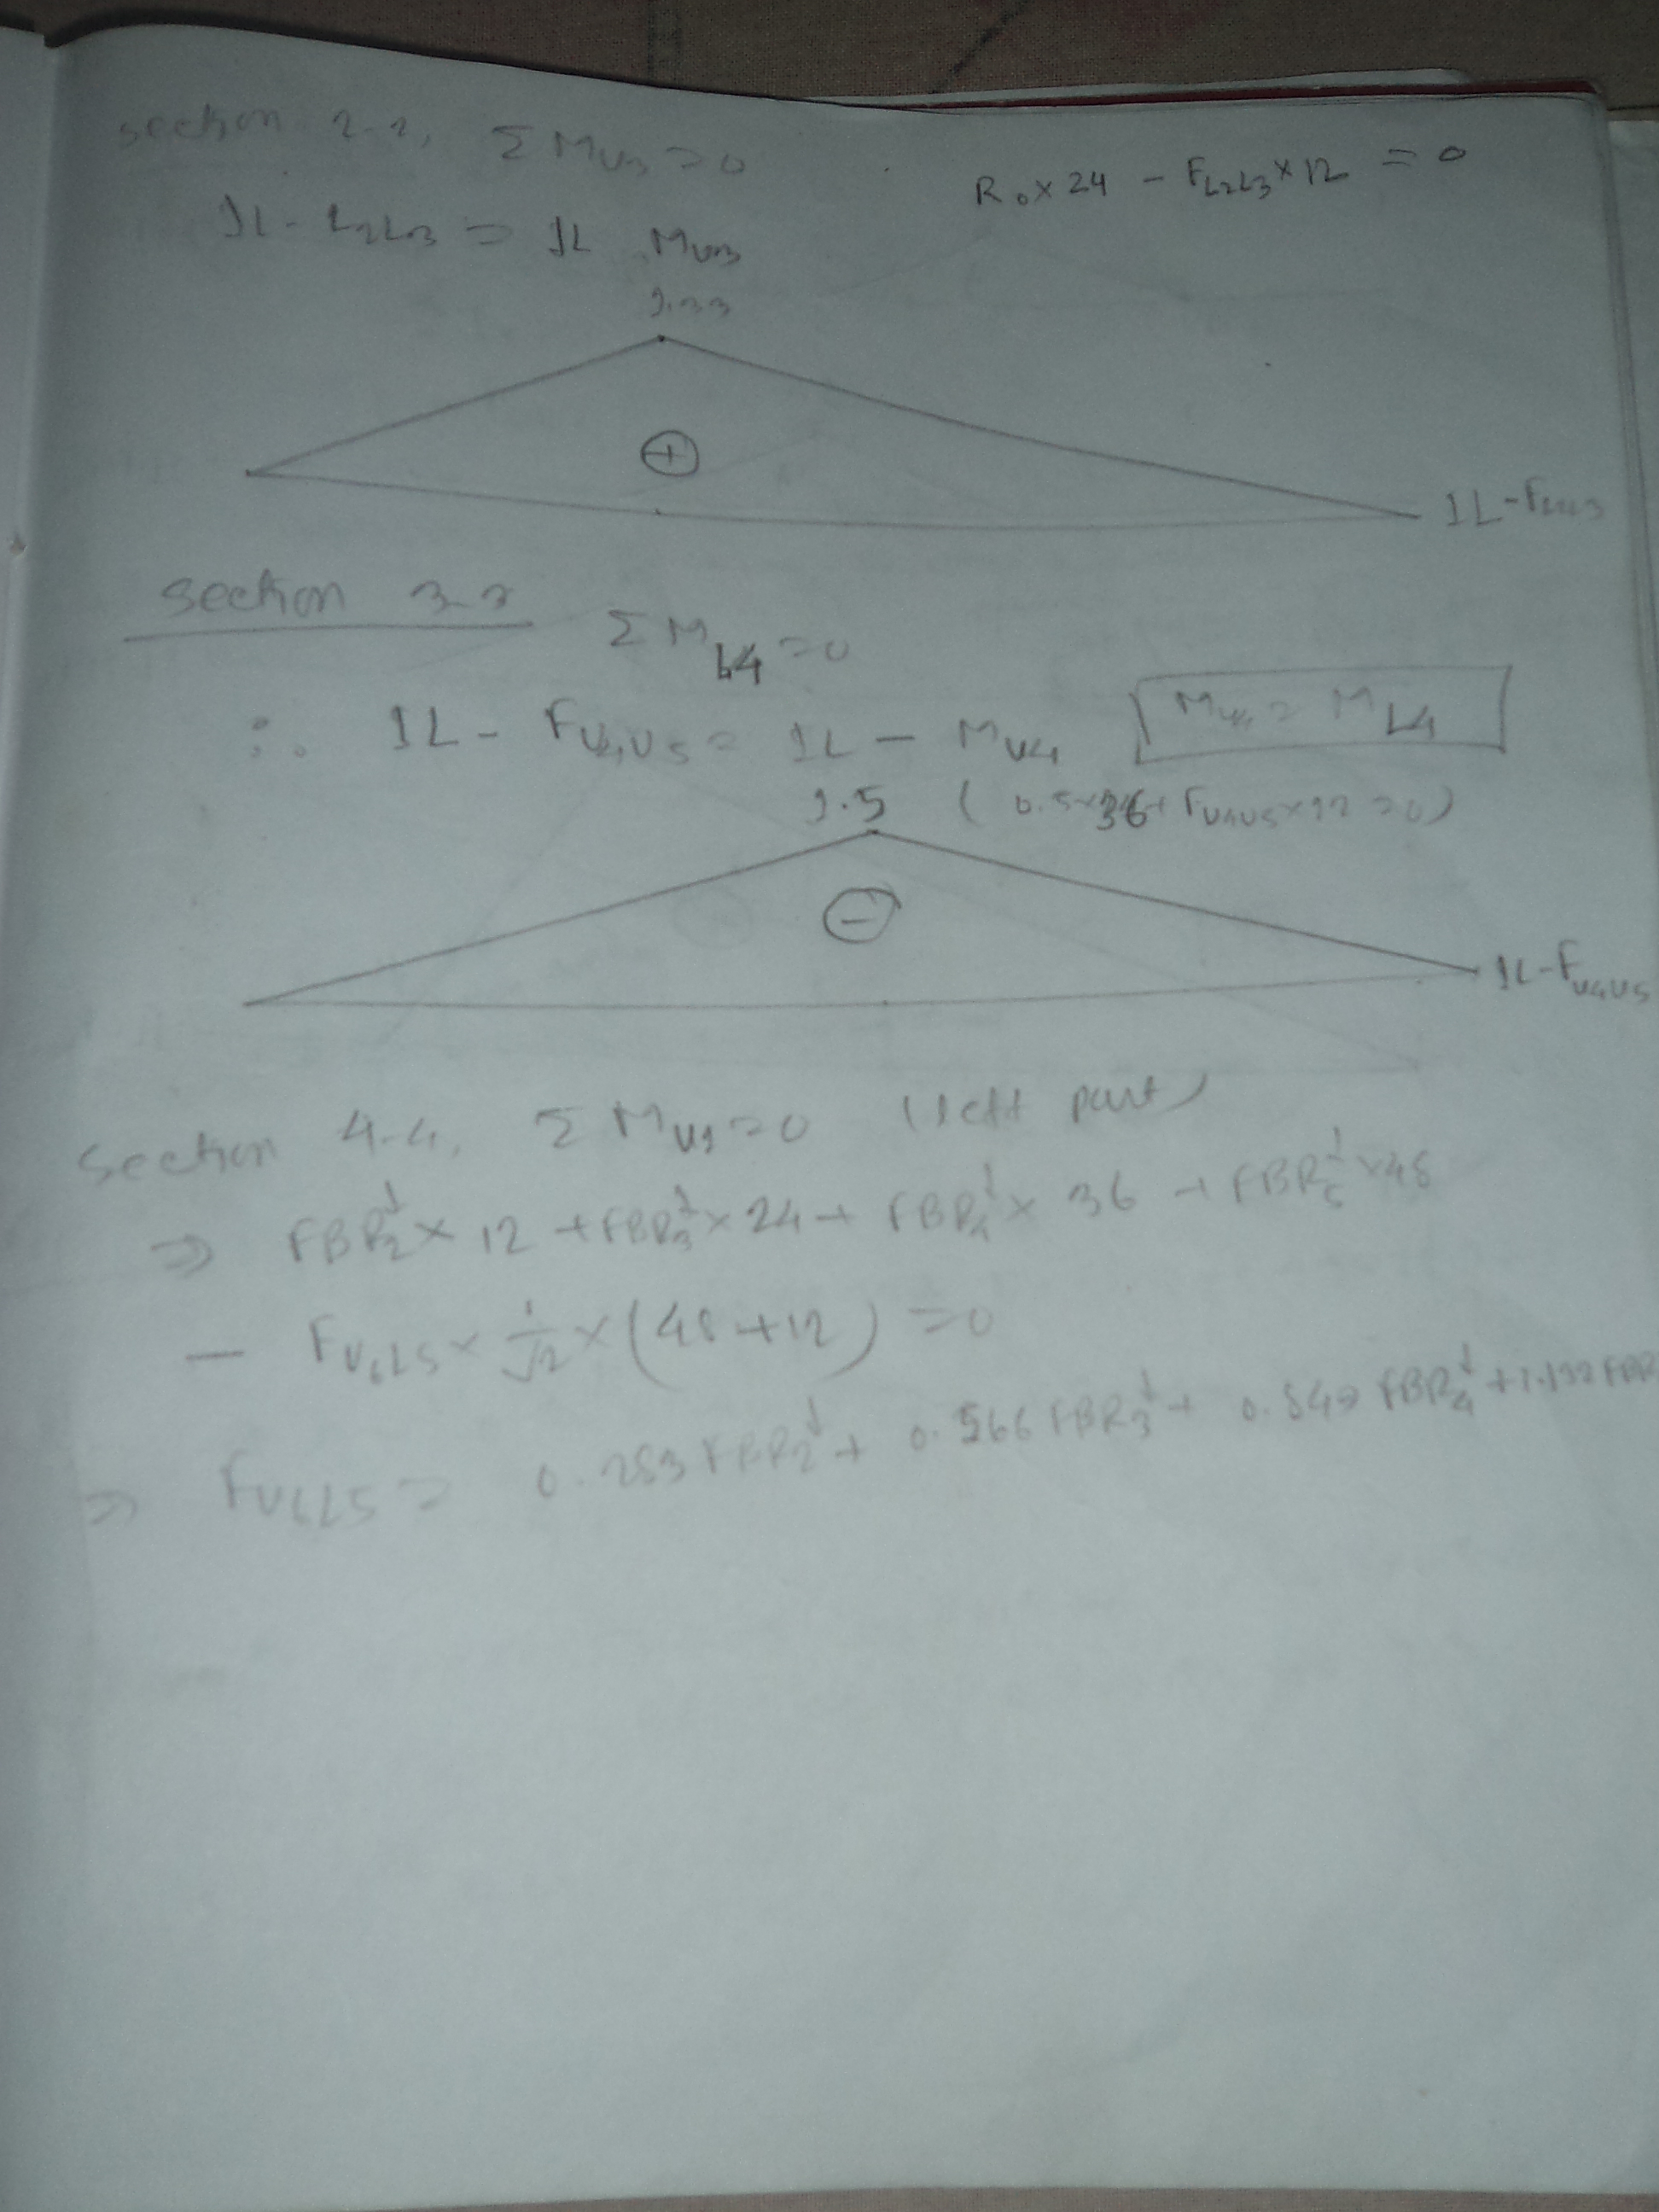 section 2-2, Σ M_U3 = 0
R₀ × 24 - F_L2L3 × 12 = 0
IL - L2L3 = IL M_U3
1.33
+
IL - F_L2L3
section 3-3 Σ M_L4 = 0
∴ IL - F_U4U5 = IL - M_U4 M_U4 = M_L4
1.5 ( 0.5×36 + F_U4U5 × 12 = 0)
-
IL - F_U4U5
Section 4-4, Σ M_U1 = 0 (left part)
⇒ FBR₂↓ × 12 + FBR₃↓ × 24 + FBR₄↓ × 36 + FBR₅↓ × 48
- F_U6L5 × 1/√2 × (48 + 12) = 0
⇒ F_U6L5 = 0.283 FBR₂↓ + 0.566 FBR₃↓ + 0.849 FBR₄↓ + 1.132 FBR